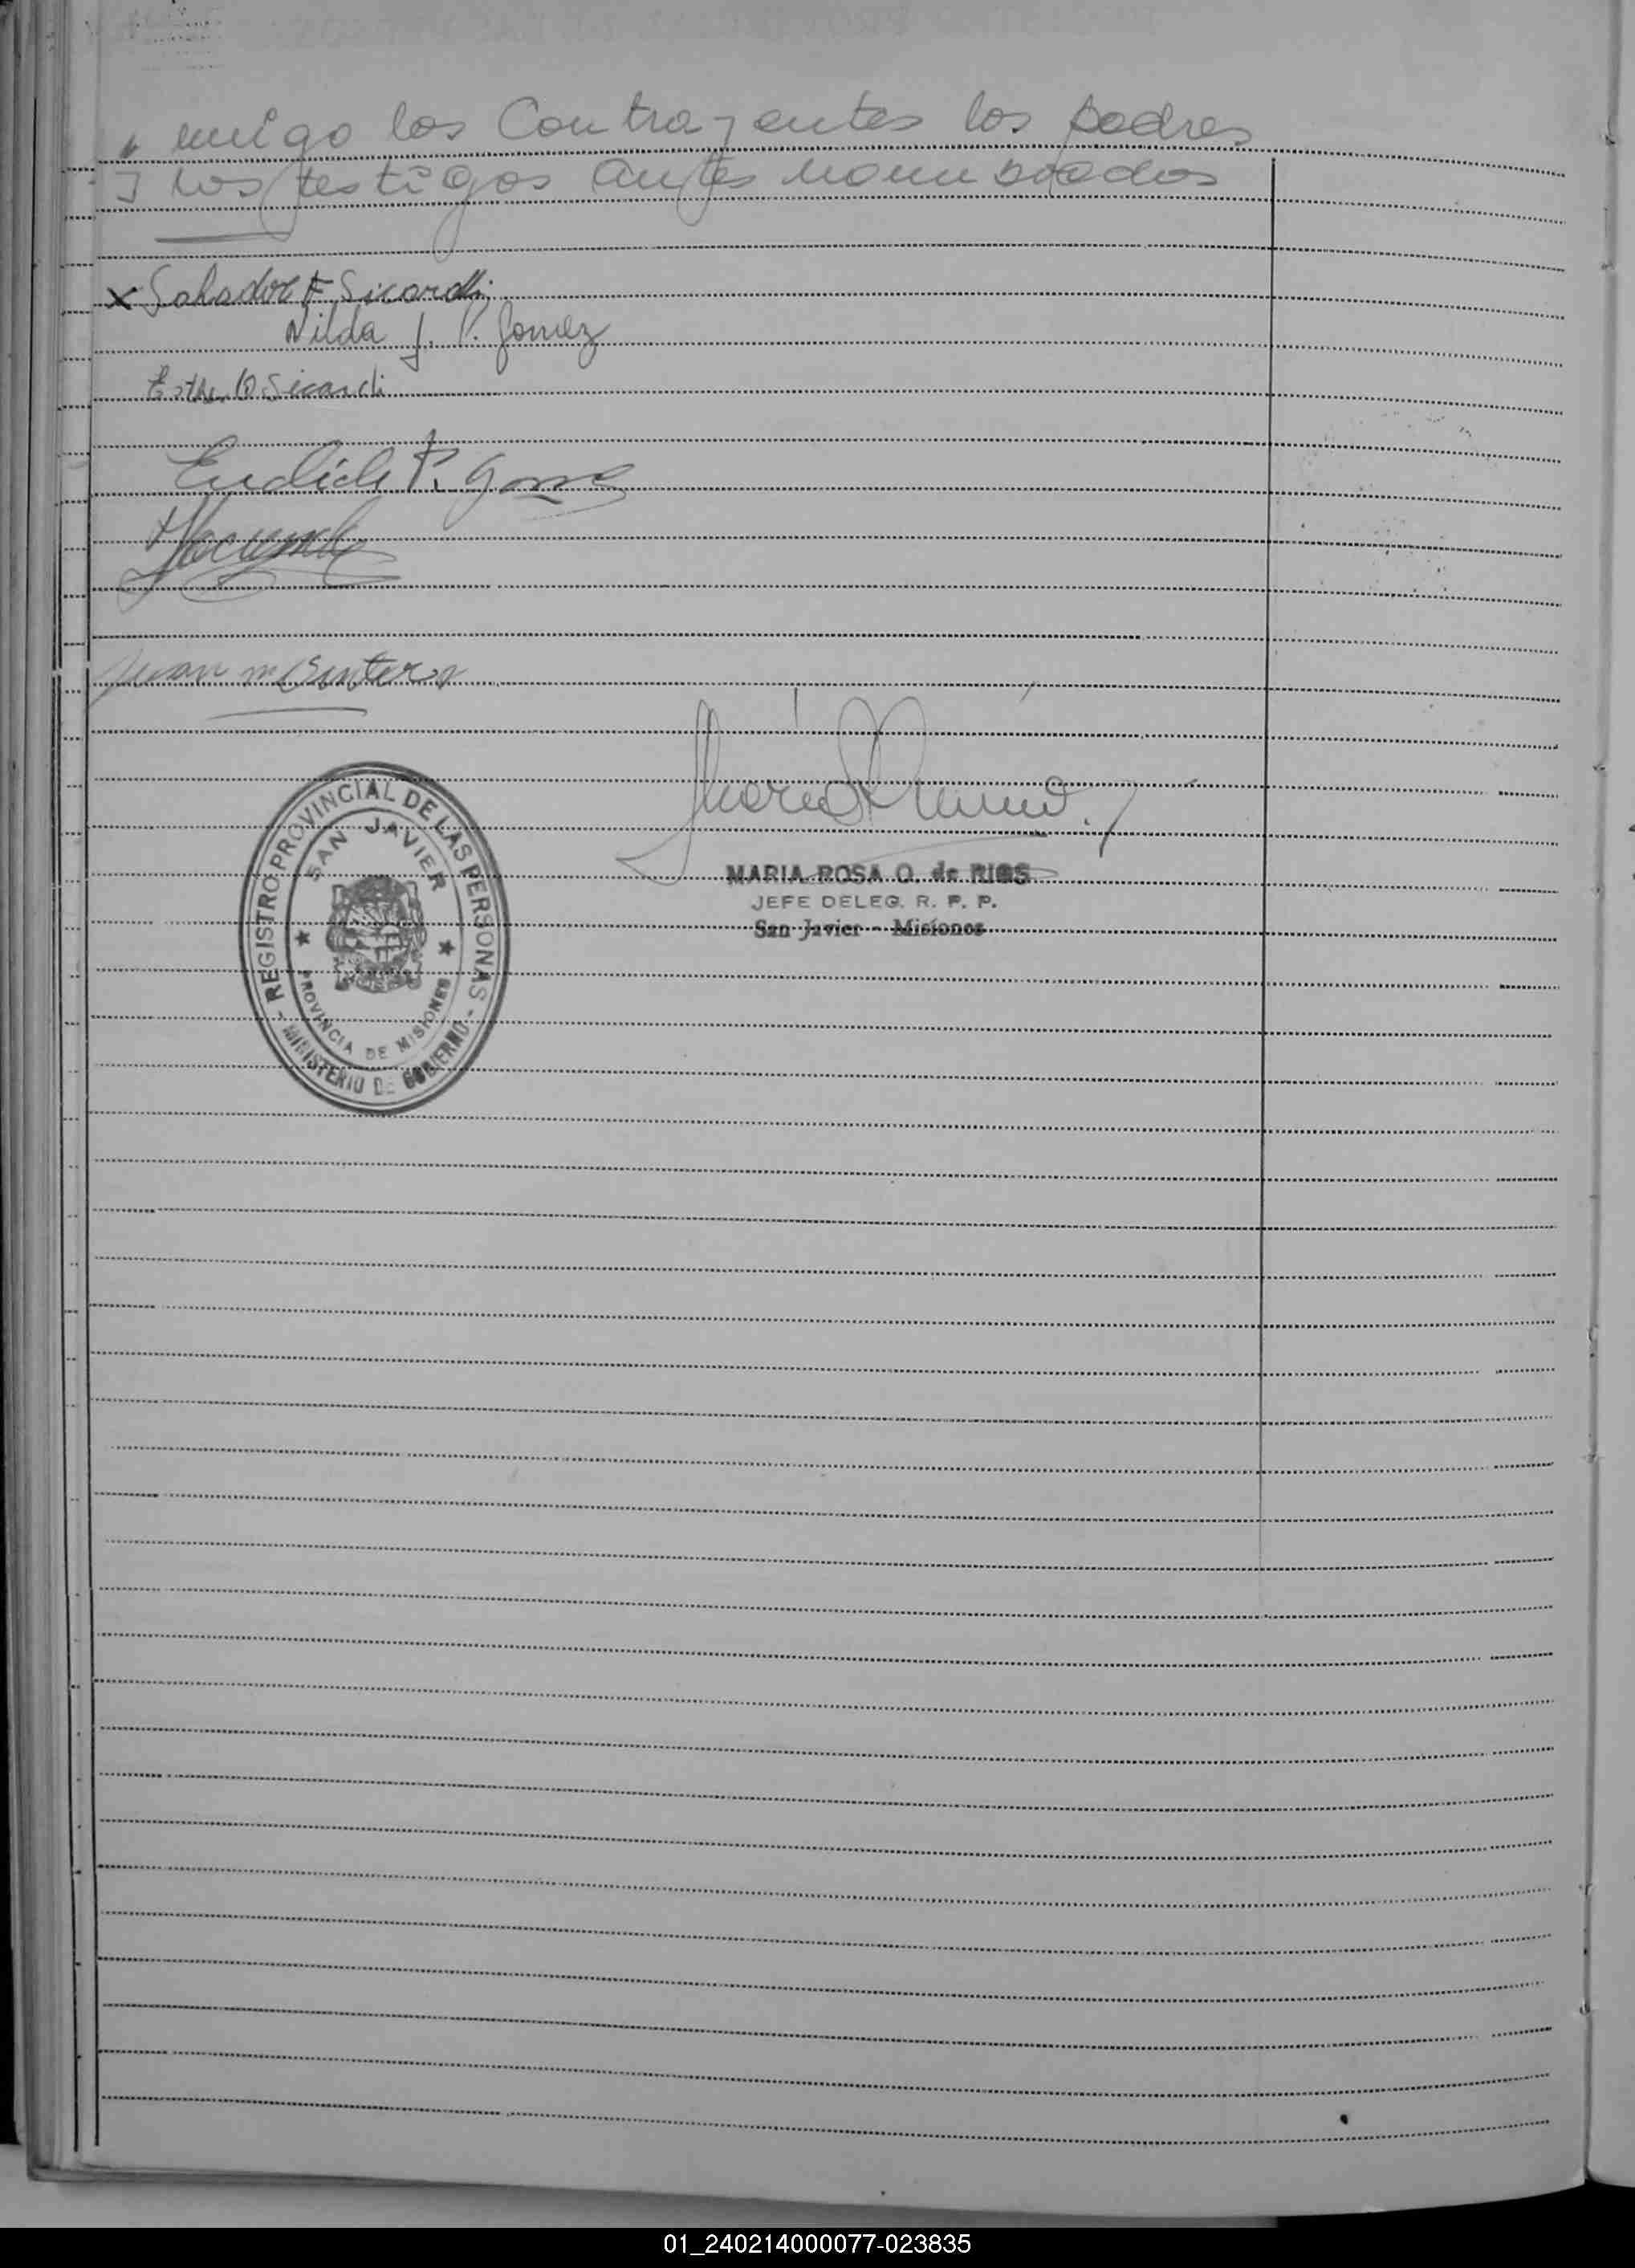 migo los Contrayentes los padres
y los testigos antes nombrados
x Salvador F Sicardi
Nilda J. P. Gomez
Esther Sicardi
P. Gomez
Juan
REGISTRO PROVINCIAL DE LAS PERSONAS
SAN JAVIER
PROVINCIA DE MISIONES
- MINISTERIO DE GOBIERNO -
MARIA ROSA O. de RIOS
JEFE DELEG. R. P. P.
San Javier - Misiones
01_240214000077-023835